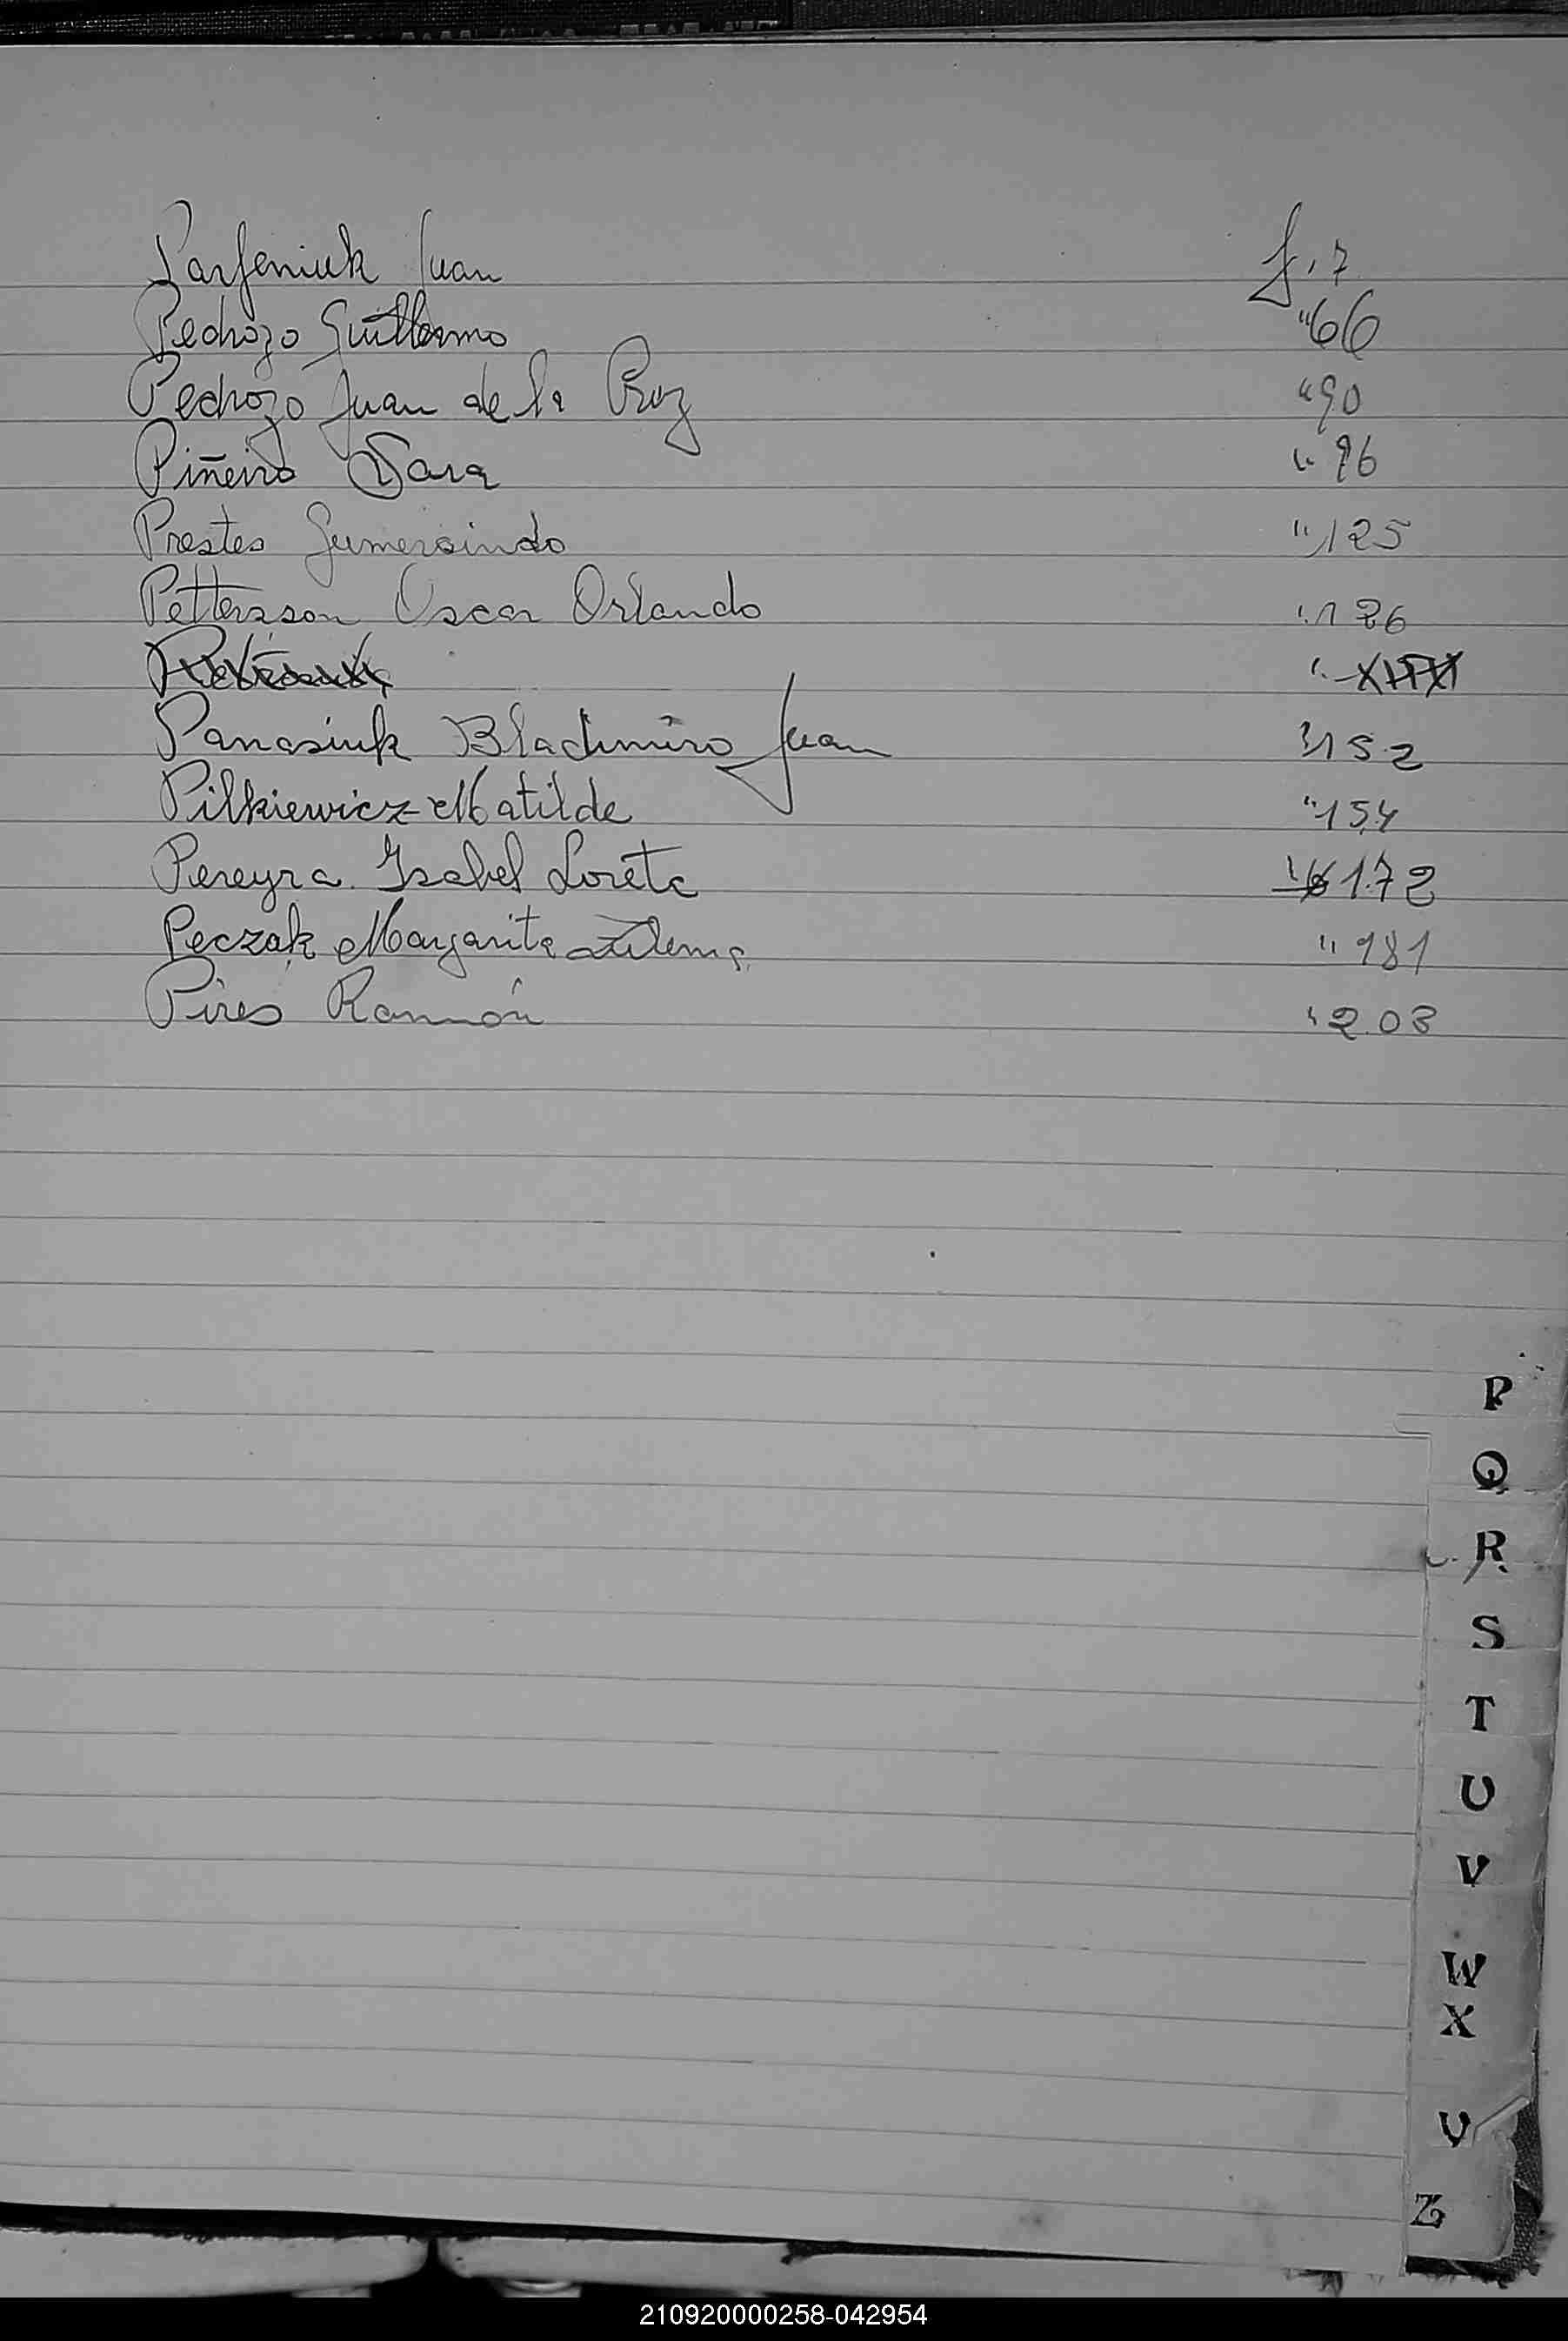 Parfeniuk Juan f. 7
Pedrozo Guillermo " 66
Pedrozo Juan de la Cruz " 90
Piñeiro Sara " 96
Prestes Gumersindo " 125
Pettersson Oscar Orlando " 126
"
Panasiuk Bladimiro Juan " 152
Pilkiewicz Matilde " 154
Pereyra Isabel Loreta " 172
Peczak Margarita " 181
Pires Ramón " 203
P
Q
R
S
T
U
V
W
X
Y
Z
210920000258-042954